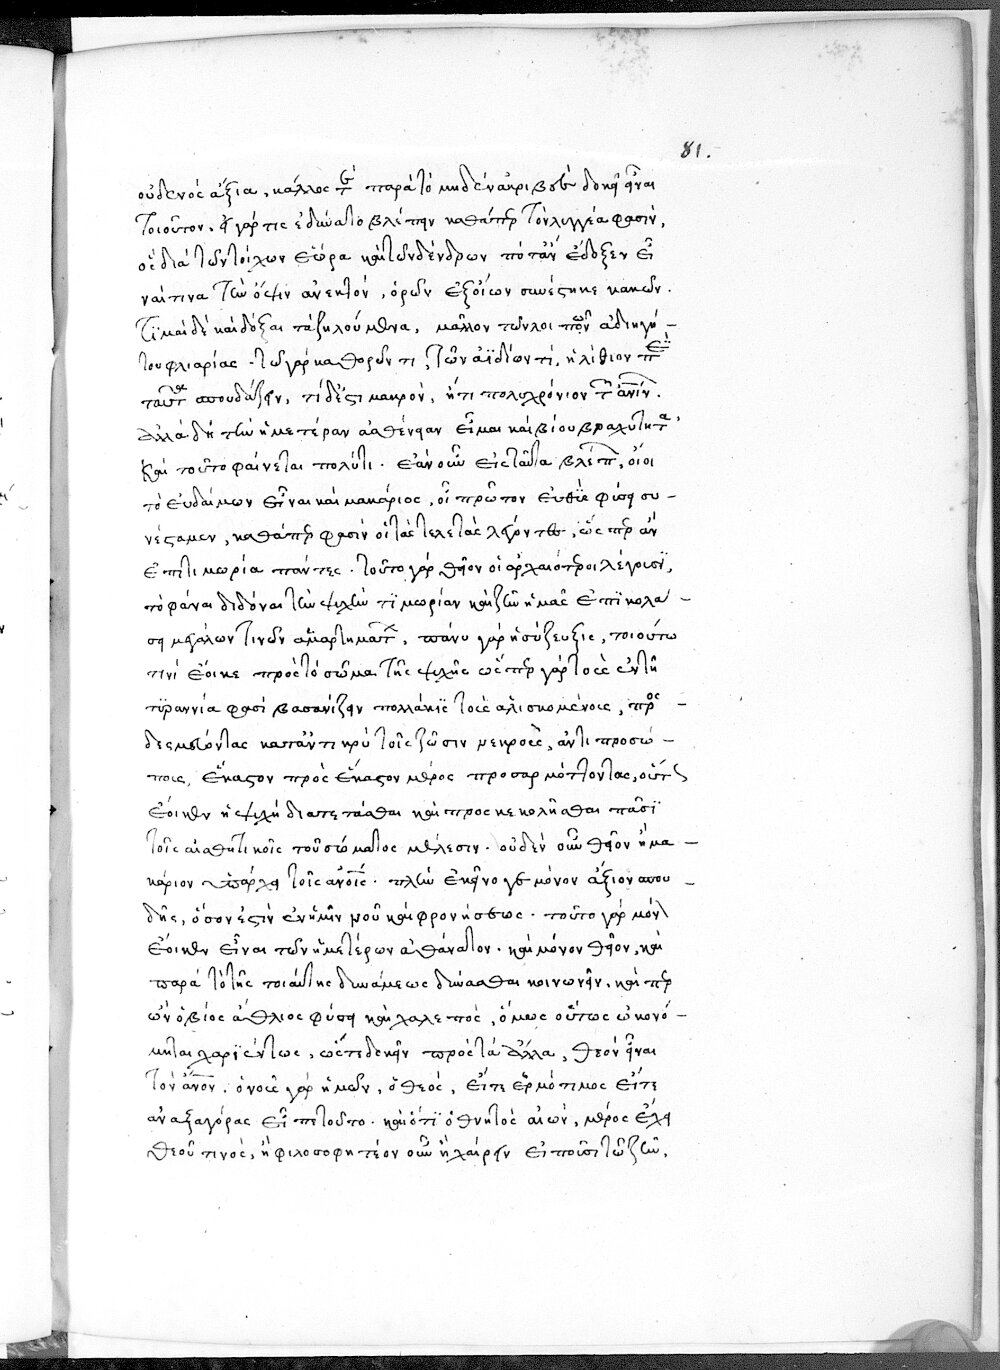 81.
οὐδενὸς ἄξια, κάλλος τε παρὰ τὸ μηδὲν ἀκριβοῦν δοκεῖ εἶναι
τοιοῦτον. εἰ γάρ τις ἐδύνατο βλέπειν καθάπερ τὸν λυγγέα φασὶν,
ὃς διὰ τῶν τοίχων ἑώρα καὶ τῶν δένδρων πότ' ἂν ἔδοξεν εἶ
ναί τινα τὴν ὄψιν ἀνεκτὸν, ὁρῶν ἐξ οἵων συνέστηκε κακῶν.
τιμαὶ δὲ καὶ δόξαι τὰ ζηλούμενα, μᾶλλον τῶν λοιπῶν ἀδιηγή-
του φλιαρίας. τῷ γὰρ καθορῶντι, τῶν ἀϊδίων τί, ἠλίθιον περὶ
ταῦτα σπουδάζειν, τί δ' ἐστι μακρὸν, ἤ τι πολυχρόνιον τῶν ἀνθρωπίνων.
ἀλλὰ δὴ τὴν ἡμετέραν ἀσθένειαν εἶμαι καὶ βίου βραχύτητα,
καὶ τοῦτο φαίνεται πολύ τι. ἐὰν οὖν εἰς ταῦτα βλέπων, οἴοι
τὸ εὐδαίμων εἶναι καὶ μακάριος, οἳ πρῶτον εὐθὺς φύσει συ-
νέσταμεν, καθάπερ φασὶν οἱ τὰς τελετὰς λέγοντες, ὥσπερ ἂν
ἐπὶ τιμωρία πάντες. τοῦτο γὰρ θεῖον οἱ ἀρχαιότεροι λέγουσι,
τὸ φάναι διδόναι τὴν ψυχὴν τιμωρίαν καὶ ζῆν ἡμᾶς ἐπὶ κολά-
σει μεγάλων τινῶν ἁμαρτημάτων, πάνυ γὰρ ἡ σύζευξις, τοιούτω
τινὶ ἔοικε πρὸς τὸ σῶμα τῆς ψυχῆς ὥσπερ γὰρ τοὺς ἐν τῇ
τυραννία φασὶ βασανίζειν πολλάκις τοὺς ἁλισκομένους, προσ-
δεσμεύοντας καταντικρὺ τοῖς ζῶσιν νεκροὺς, ἀντιπροσώ-
πους, ἕκαστον πρὸς ἕκαστον μέρος προσαρμόττοντας, οὕτως
ἔοικεν ἡ ψυχὴ διατετάσθαι καὶ προσκεκολλῆσθαι πᾶσι
τοῖς αἰσθητικοῖς τοῦ σώματος μέλεσιν. οὐδὲν οὖν θεῖον ἢ μα-
κάριον ὑπάρχει τοῖς ἀνθρώποις. πλὴν ἐκεῖνο γε μόνον ἄξιον σπου-
δῆς, ὅσον ἐστὶν ἐν ἡμῖν νοῦ καὶ φρονήσεως. τοῦτο γὰρ μόνον
ἔοικεν εἶναι τῶν ἡμετέρων ἀθάνατον. καὶ μόνον θεῖον, καὶ
παρὰ τὸ τῆς τοιαύτης δυνάμεως δύνασθαι κοινωνεῖν. καίπερ
ὢν ὁ βίος ἄθλιος φύσει καὶ χαλεπὸς, ὅμως οὕτως ὠκονό-
μηται χαριέντως, ὥστε δοκεῖν πρὸς τὰ ἄλλα, θεὸν εἶναι
τὸν ἄνθρωπον. ὁ νοῦς γὰρ ἡμῶν, ὁ θεὸς, εἴτε ἑρμότιμος εἴτε
ἀναξαγόρας εἶπε τοῦτο. καὶ ὅτι ὁ θνητὸς αἰὼν, μέρος ἔχει
θεοῦ τινὸς, ἢ φιλοσοφητέον οὖν ἢ χαίρειν εἰποῦσι τῷ ζῆν,